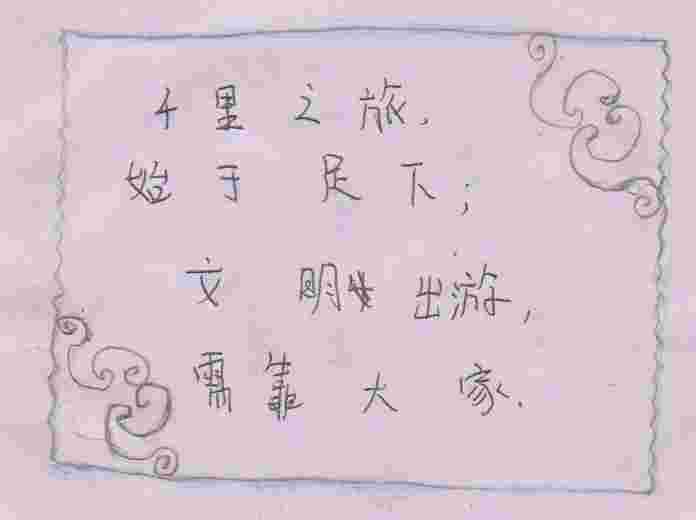 千里之旅,
始于足下;
文明出游,
需靠大家.